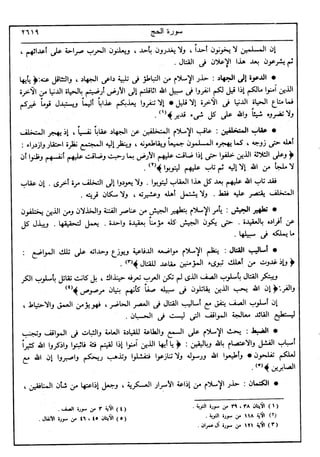 سورة الحج
٢٦١٩
إن المسلمين لا يخونون أحداً، ولا يغدرون بأحد، ويعلنون الحرب صراحة على أعدائهم،
ثم يشرعون بعد هذا الإعلان في القتال.
* الدعوة إلى الجهاد: حذر الإسلام من التباطؤ في تلبية داعي الجهاد، والتثاقل عنه: ﴿ يأيها
الذين آمنوا مالكم إذا قيل لكم انفروا في سبيل الله اثاقلتم إلى الأرض أرضيتم بالحياة الدنيا من الآخرة
فما متاع الحياة الدنيا في الآخرة إلا قليل * إلا تنفروا يعذبكم عذاباً أليماً ويستبدل قوماً غيركم
ولا تضروه شيئاً والله على كل شيء قدير ﴾(١).
* عقاب المتخلفين: عاقب الإسلام المتخلفين عن الجهاد عقاباً نفسياً، إذ يهجر المتخلف
أهله حتى زوجه، كما يهجره المسلمون جميعاً ويقاطعونه، وينظر إليه المجتمع نظرة احتقار وازدراء:
﴿ وعلى الثلاثة الذين خلفوا حتى إذا ضاقت عليهم الأرض بما رحبت وضاقت عليهم أنفسهم وظنوا أن
لا ملجأ من الله إلا إليه ثم تاب عليهم ليتوبوا ﴾(٢).
فقد تاب الله عليهم بعد كل هذا العقاب ليتوبوا. ولا يعودوا إلى التخلف مرة أخرى. إن عقاب
المتخلف يقتصر عليه فقط. ولا يشمل أهله وعشيرته، ولا سكان قريته.
* تطهير الجيش: يأمر الإسلام بتطهير الجيش من عناصر الفتنة والخذلان ومن الذين يختلفون
عن أفراده بالعقيدة. حتى يكون الجيش كله مؤمناً بعقيدة واحدة. يعمل لتحقيقها. ويبذل كل
ما يملكه في سبيلها.
* أساليب القتال: ينظم الإسلام مواضعه الدفاعية ويوزع وحداته على تلك المواضع:
﴿ وإذ غدوت من أهلك تبوىء المؤمنين مقاعد للقتال ﴾(٣).
ويبتكر القتال بأسلوب الصف الذي لم تكن العرب تعرفه حينذاك، بل كانت تقاتل بأسلوب الكر
والفر: ﴿ إن الله يحب الذين يقاتلون في سبيله صفاً كأنهم بنيان مرصوص ﴾(٤)
إن أسلوب الصف يتفق مع أساليب القتال في العصر الحاضر، فهو يؤمن العمق والاحتياط،
ليستطيع القائد معالجة المواقف التي ليست في الحسبان.
* الضبط: يحث الإسلام على السمع والطاعة للقيادة العامة والثبات في المواقف وتجنب
أسباب الفشل والاعتصام بالله وباليقين: ﴿ يأيها الذين آمنوا إذا لقيتم فئة فاثبتوا واذكروا الله كثيراً
لعلكم تفلحون * وأطيعوا الله ورسوله ولا تنازعوا فتفشلوا وتذهب ريحكم واصبروا إن الله مع
الصابرين ﴾(٥).
* الكتمان: حذر الإسلام من إذاعة الأسرار العسكرية، وجعل إذاعتها من شأن المنافقين،
(١) الآيتان ٣٨، ٣٩ من سورة التوبة.
(٢) الآية ١١٨ من سورة التوبة.
(٣) الآية ١٢١ من سورة آل عمران.
(٤) الآية ٣ من سورة الصف.
(٥) الآيتان ٤٥، ٤٦ من سورة الأنفال.